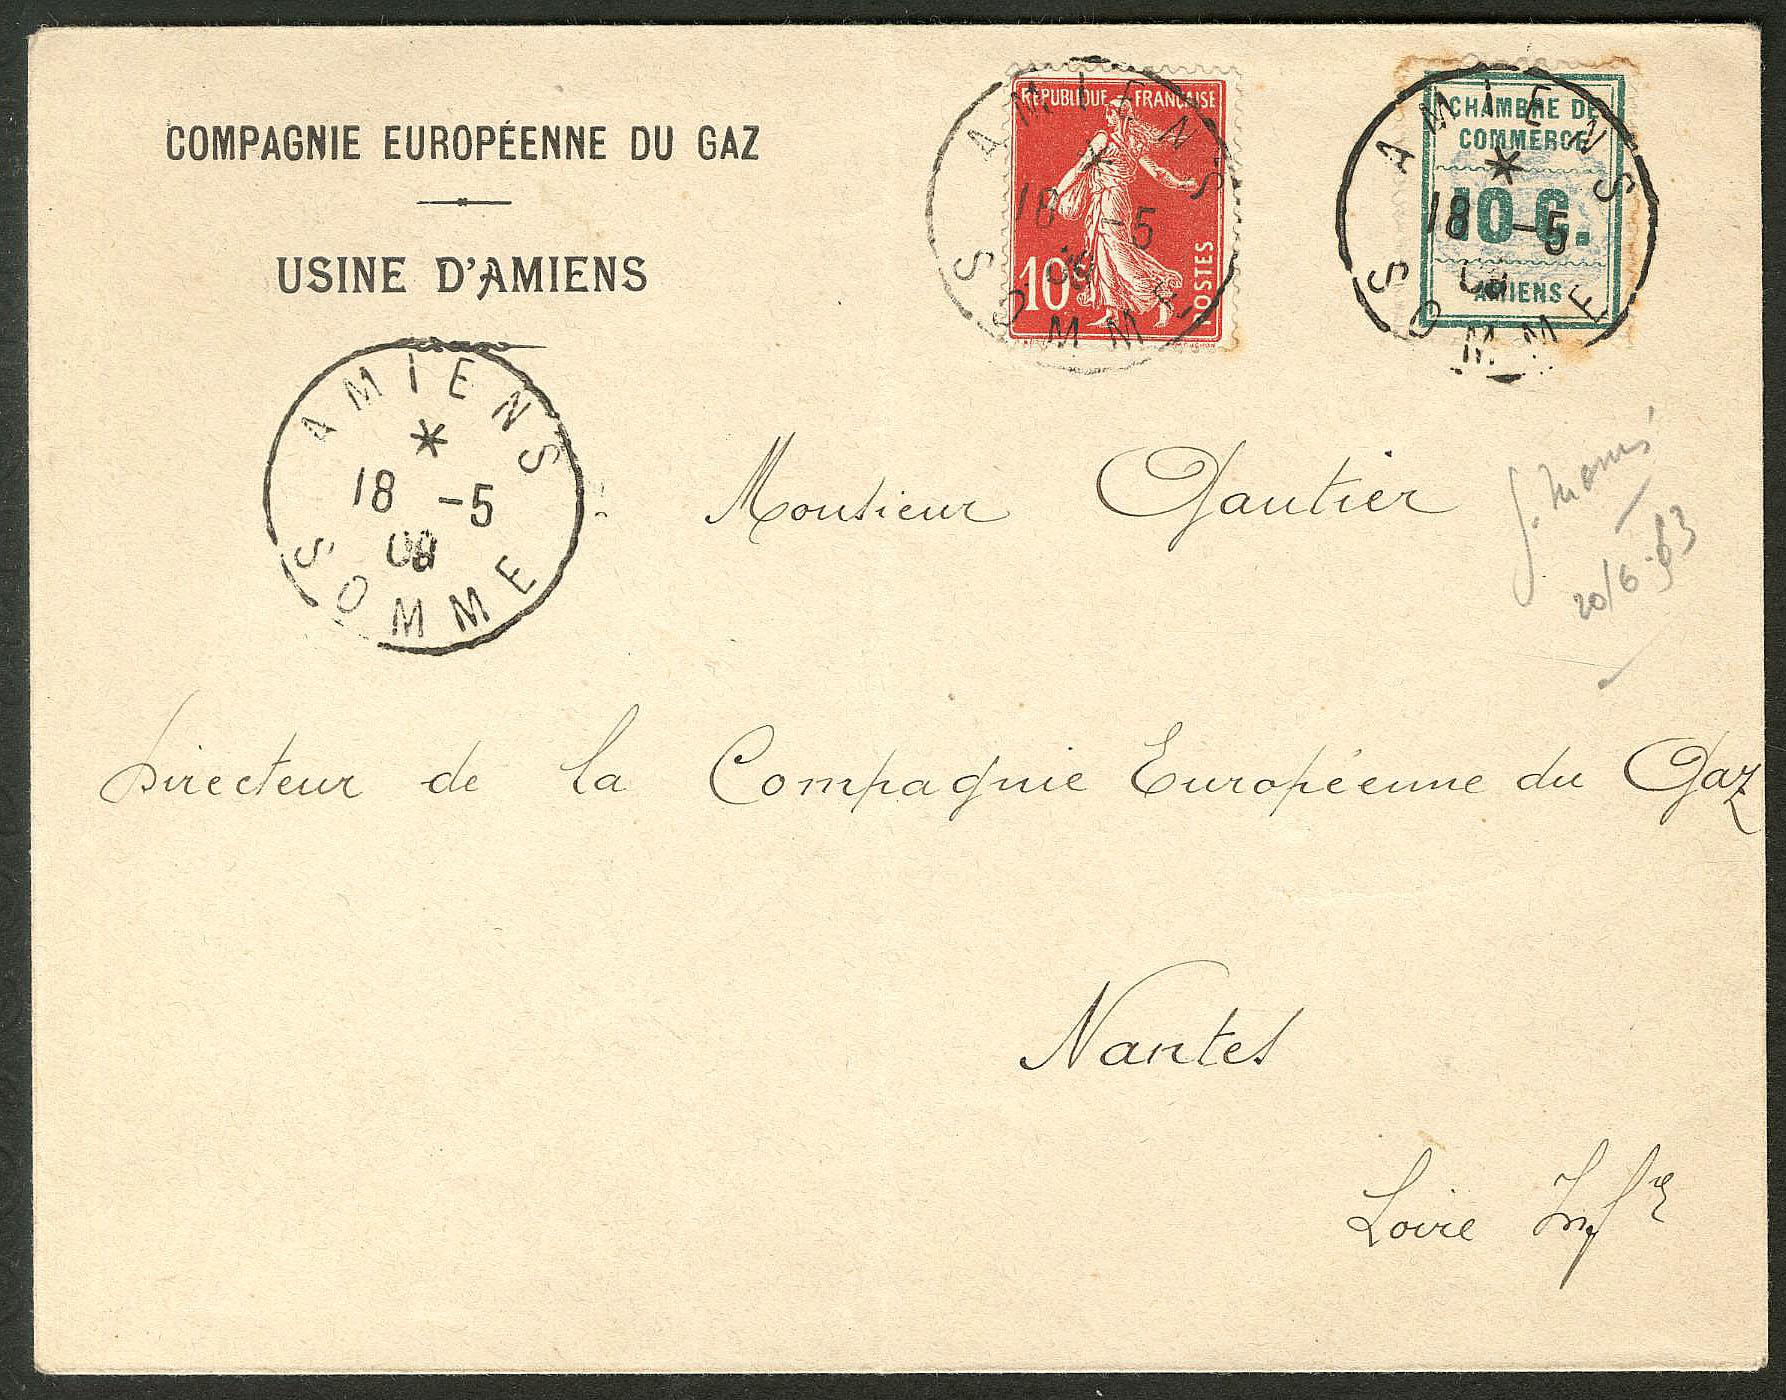 COMPAGNIE EUROPÉENNE DU GAZ
USINE D'AMIENS
REPUBLIQUE FRANÇAISE
10
POSTES
AMIENS
18 -5
SOMME
CHAMBRE DE
COMMERCE
10 C.
AMIENS
AMIENS
18 -5
SOMME
AMIENS
18 -5
SOMME
Monsieur Gautier
20/6
Directeur de la Compagnie Européenne du Gaz
Nantes
Loire Infre